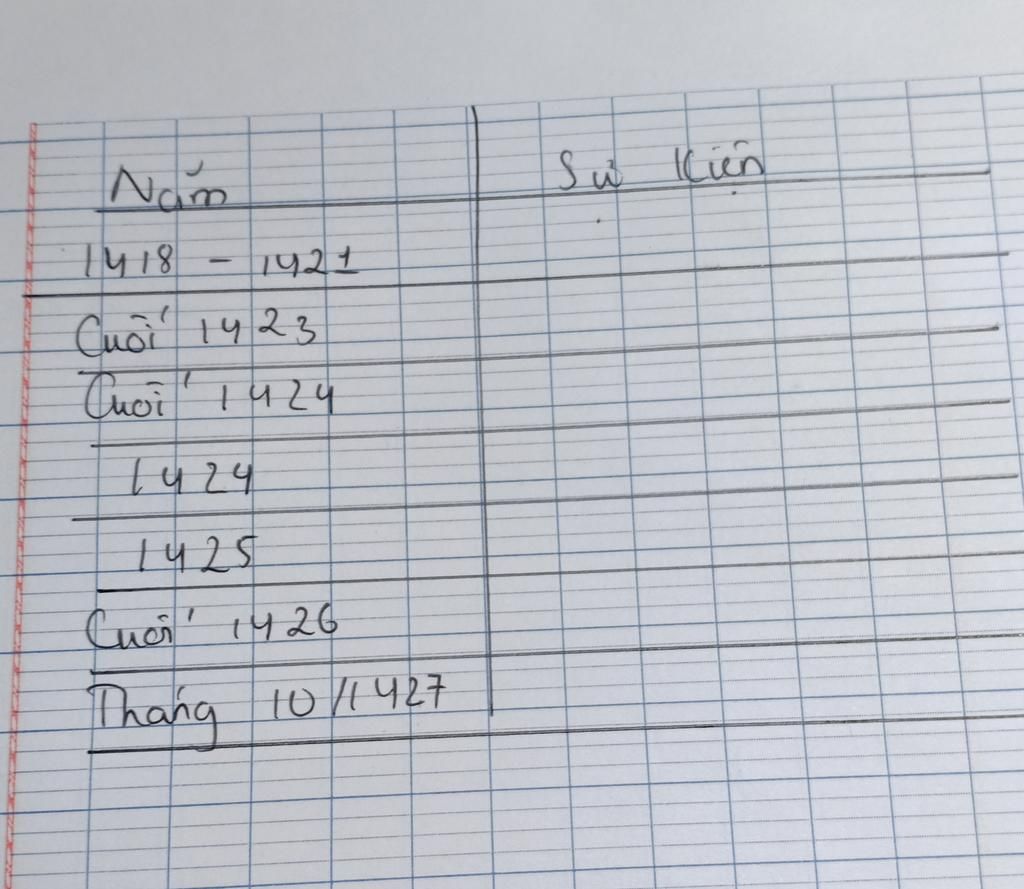 Năm Sự Kiện
1418 - 1421
Cuối 1423
Cuối 1424
1424
1425
Cuối 1426
Tháng 10/1427